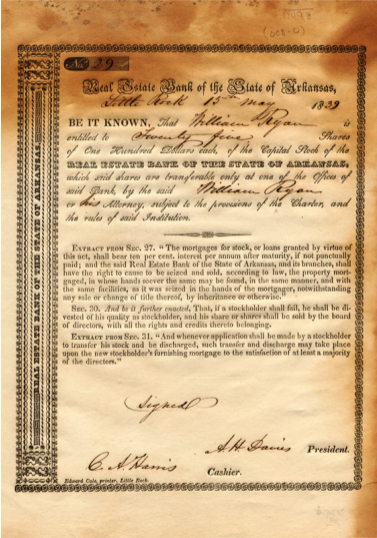 No 29
Real Estate Bank of the State of Arkansas,
Little Rock 15th May 1839
BE IT KNOWN, That William Ryan is
entitled to Twenty five Shares
of One Hundred Dollars each, of the Capital Stock of the
REAL ESTATE BANK OF THE STATE OF ARKANSAS,
which said shares are transferable only at one of the Offices of
said Bank, by the said William Ryan
or his Attorney, subject to the provisions of the Charter, and
the rules of said Institution.
EXTRACT FROM SEC. 27. "The mortgages for stock, or loans granted by virtue of
this act, shall bear ten per cent. interest per annum after maturity, if not punctually
paid; and the said Real Estate Bank of the State of Arkansas, and its branches, shall
have the right to cause to be seized and sold, according to law, the property mort-
gaged, in whose hands soever the same may be found, in the same manner, and with
the same facilities, as it was seized in the hands of the mortgager, notwithstanding
any sale or change of title thereof, by inheritance or otherwise."
SEC. 30. And be it further enacted, That, if a stockholder shall fail, he shall be di-
vested of his quality as stockholder, and his share or shares shall be sold by the board
of directors, with all the rights and credits thereto belonging.
EXTRACT FROM SEC. 31. "And whenever application shall be made by a stockholder
to transfer his stock and be discharged, such transfer and discharge may take place
upon the new stockholder's furnishing mortgage to the satisfaction of at least a majority
of the directors."
Signed
A H Davies President.
C. A. Harris Cashier.
Edward Cole, printer, Little Rock.
REAL ESTATE BANK OF THE STATE OF ARKANSAS.